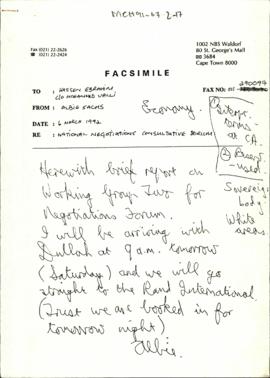 MCH91-67 2-17
Fax (021) 22-2626
☎ (021) 22-2424
1002 NBS Waldorf
80 St. George's Mall
3684
Cape Town 8000
FACSIMILE
TO : HASSEN EBRAHIM
C/O MOHAMMED VALLI
FAX NO:
FROM : ALBIE SACHS
Economy.
DATE : 6 MARCH 1992
RE : NATIONAL NEGOTIATIONS CONSULTATIVE FORUM
at CA.
Herewith brief report on
Working Group Two for
Negotiations Forum.
Sovereign
body
White
areas.
I will be arriving with
Dullah at 9 a.m. tomorrow
(Saturday) and we will go
straight to the Rand International.
(Trust we are booked in for
tomorrow night)
Albie.